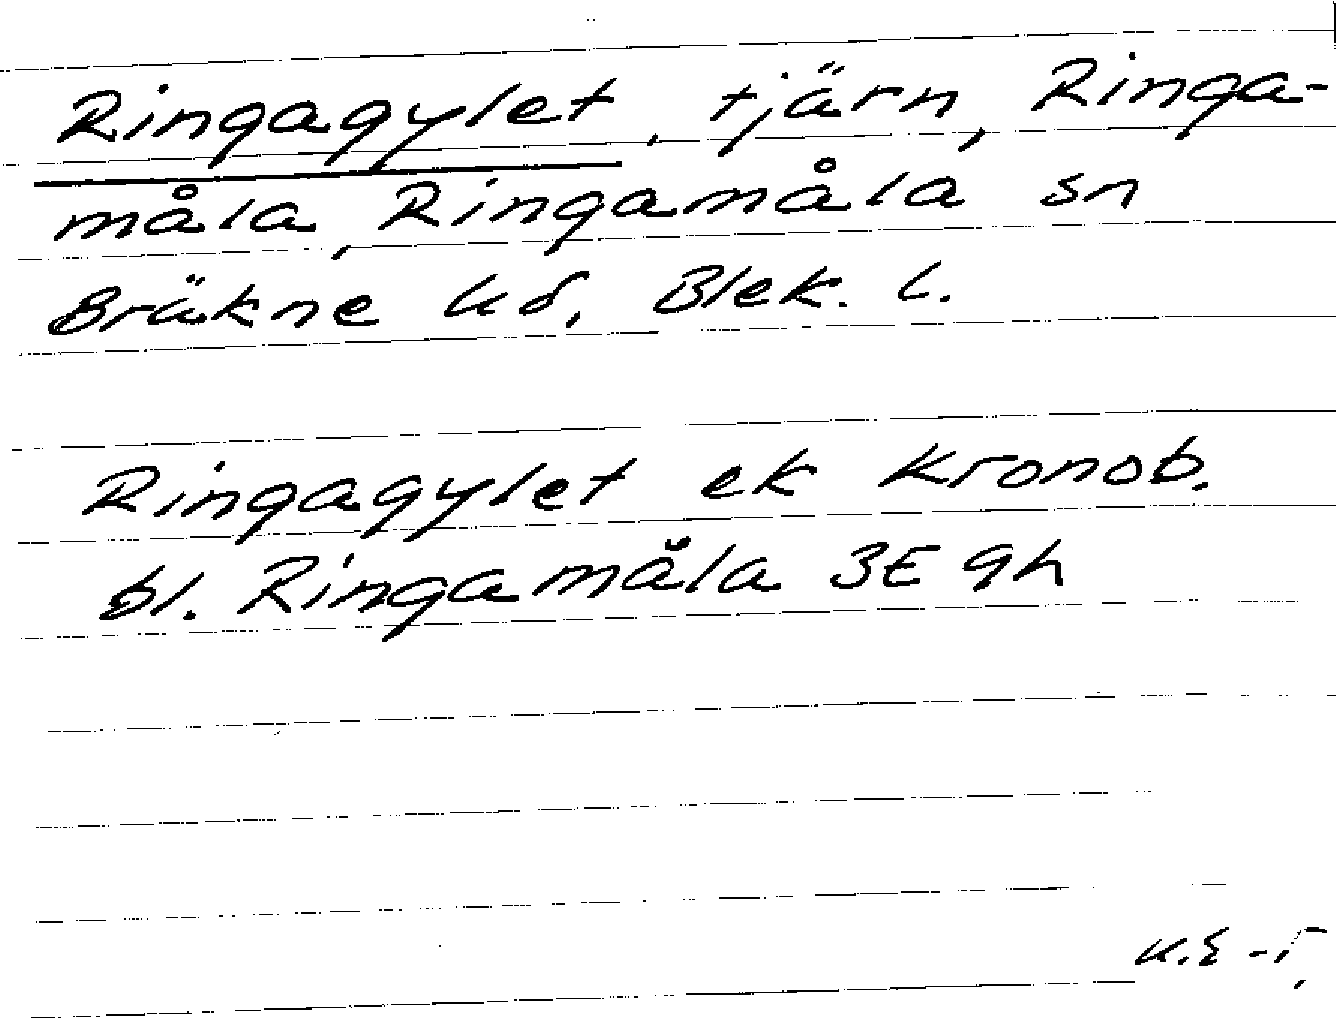 Ringagylet, tjärn, Ringa-
måla, Ringamåla sn
Bräkne hd, Blek. l.
Ringagylet ek Kronob.
bl. Ringamåla 3E 9h